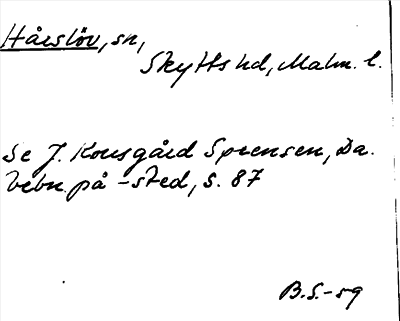 Hårslöv, sn,
Skytts hd, Malm. l.
Se J. Kousgård Sørensen, Da.
bebn. på -sted, s. 87
B.S.-59